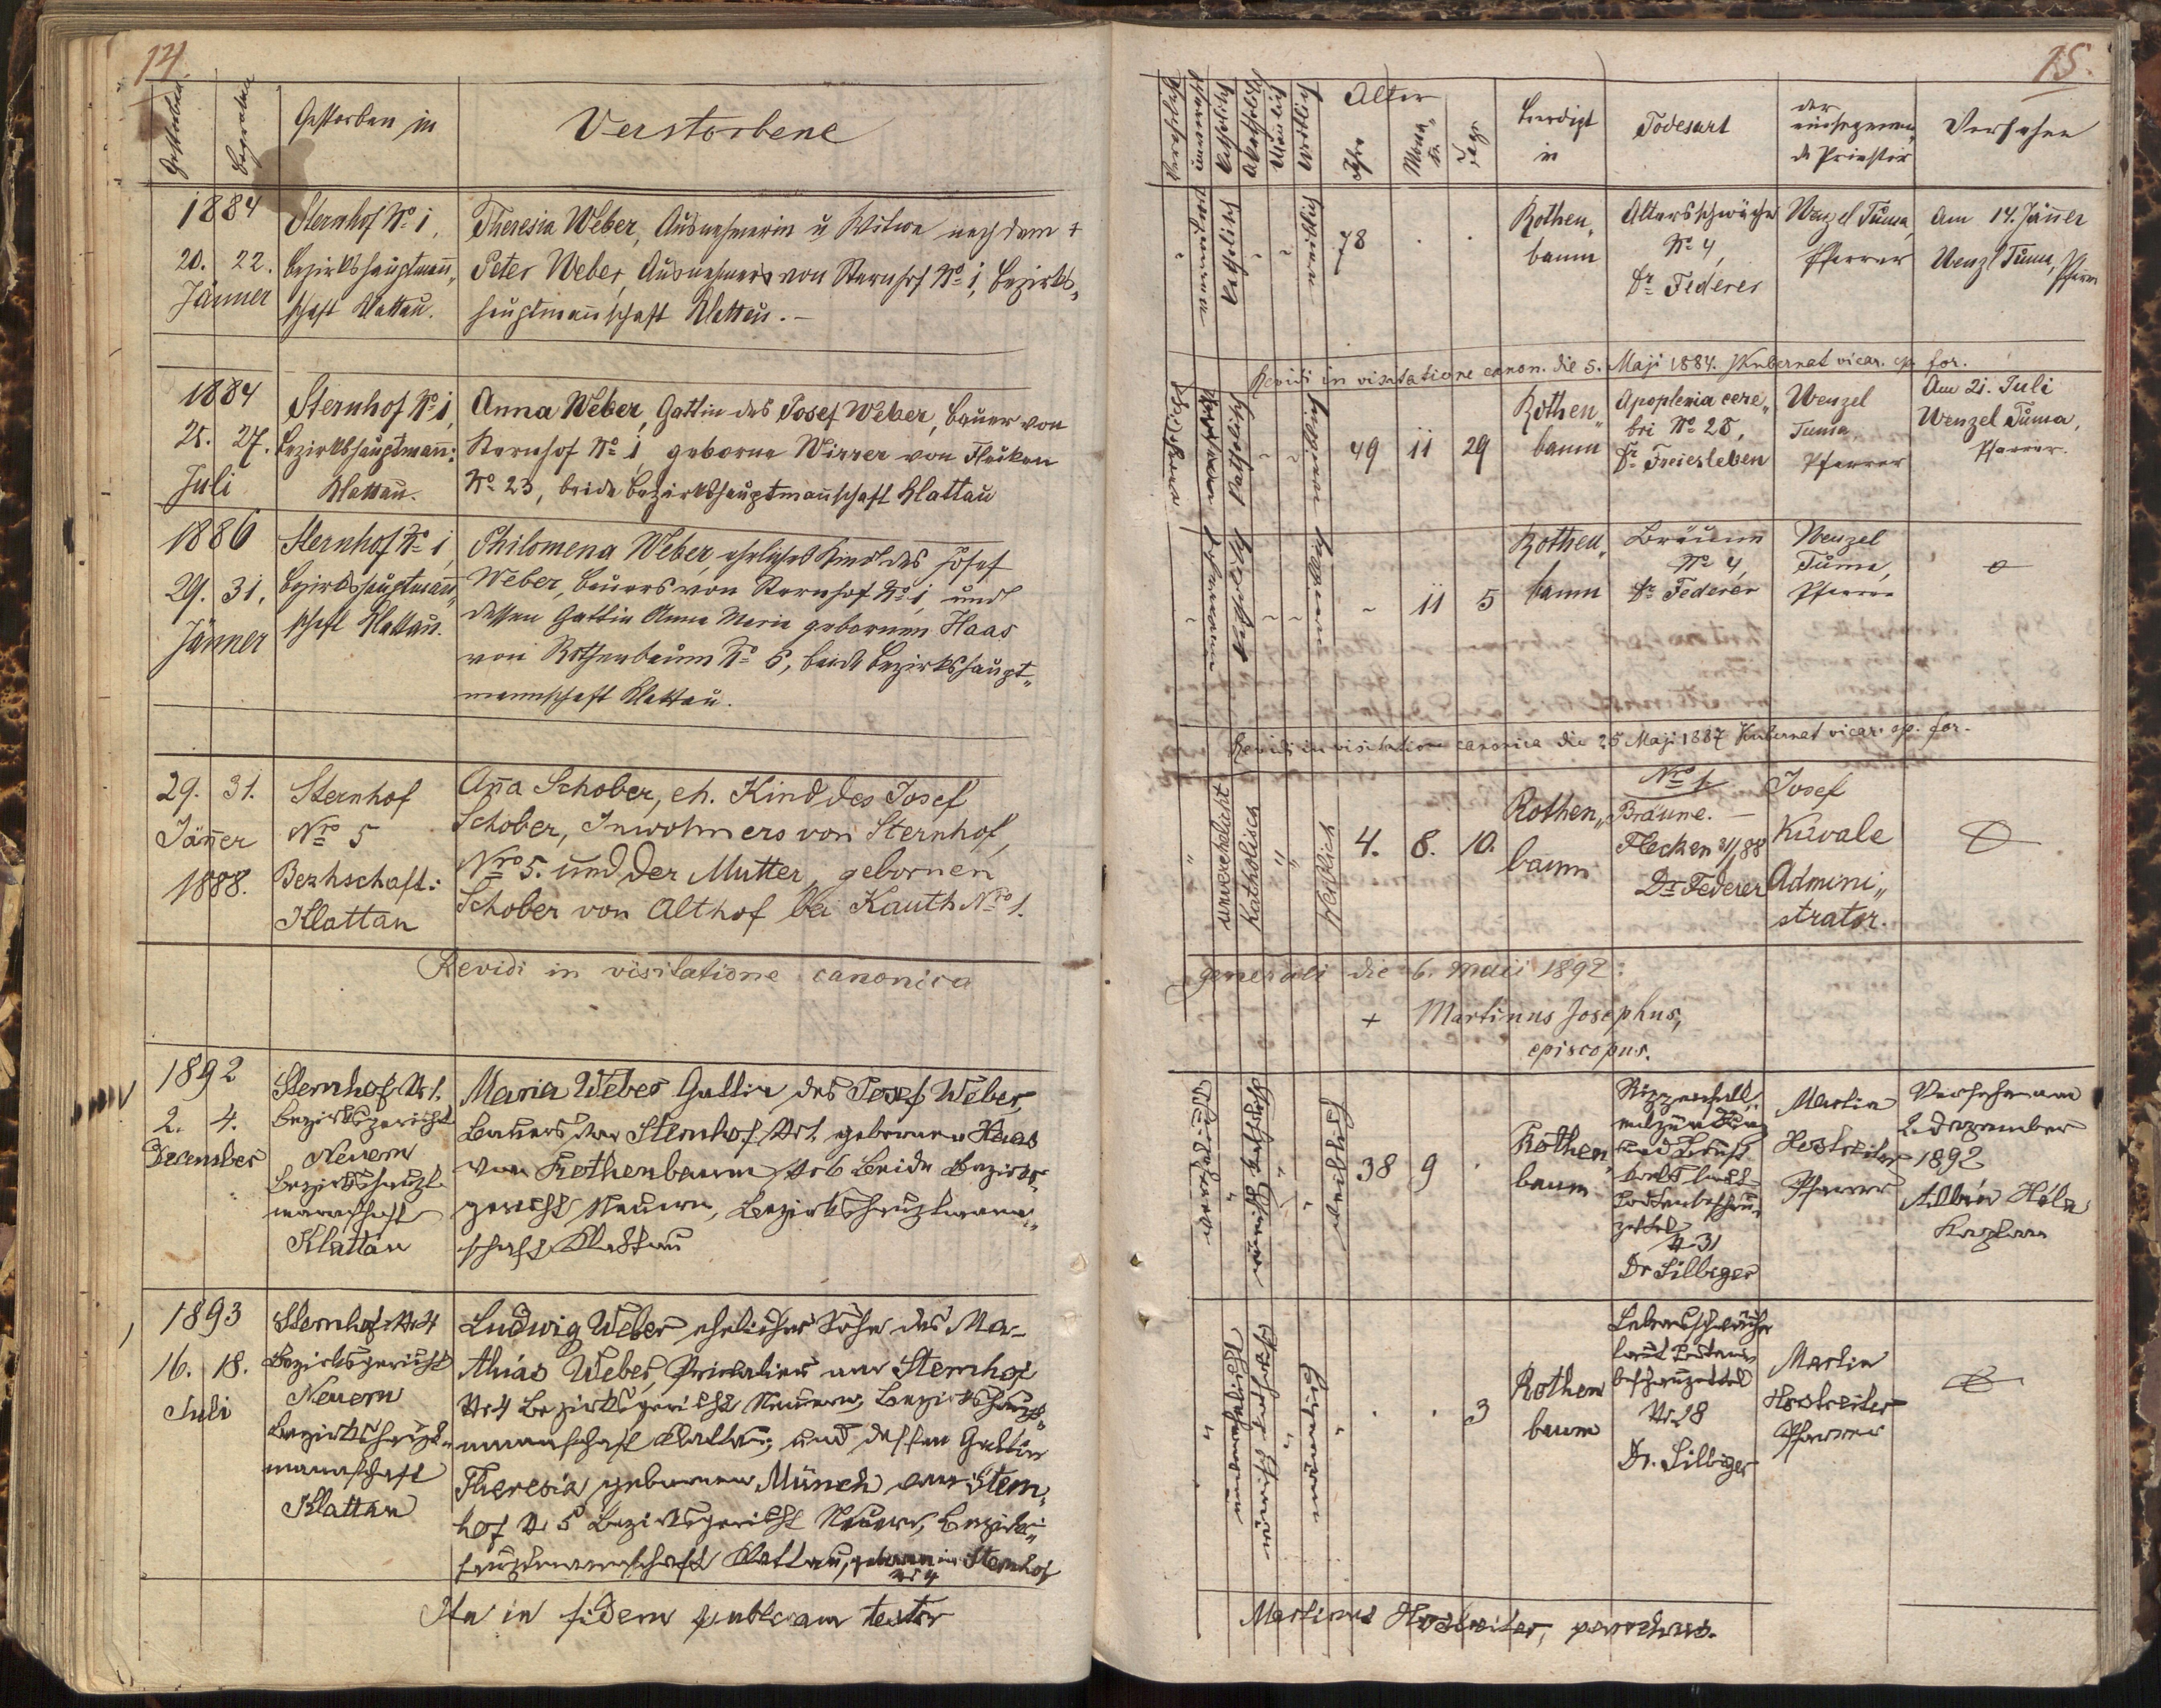 14
Gestorben
Begraben
Gestorben in
Verstorbene
1884
20. 22.
Jänner
Sternhof No 1,
Bezirkshauptmann„
schaft Klattau.
Theresia Weber, Ausnehmerin u Witwe nach dem +
Peter Weber, Ausnehmers von Sternhof No 1, Bezirks„
hauptmannschaft Klattau. –
1884
25. 27.
Juli
Sternhof No 1,
Bezirkshauptmann:
Klattau.
Anna Weber, Gattin des Josef Weber, Bauer von
Sternhof No 1, geborne Wirrer von Flecken
No 23, beide Bezirkshauptmannschaft Klattau
1886
29. 31.
Jänner
Sternhof No 1,
Bezirkshauptmann„
schaft Klattau.
Philomena Weber, eheliches Kind des Josef
Weber, Bauers von Sternhof No 1, und
dessen Gattin Anna Maria gebornen Haas
von Rothenbaum No 6, beide Bezirkshaupt„
mannschaft Klattau.
29. 31.
Jäner
1888.
Sternhof
Nro 5
Bezhschaft:
Klattau
Ana Schober, eh. Kind des Josef
Schober, Inwohners von Sternhof,
Nro 5. und der Mutter, gebornen
Schober von Althof bei Kauth Nro 1.
Revidi in visitatione canonica
1892
2. 4.
December
Sternhof Nr 1.
Bezirksgericht
Neuern
Bezirkshaupt
mannschaft
Klattau
Maria Weber Gattin des Josef Weber,
Bauers von Sternhof Nr 1 gebornen Haas
von Rothenbaum Nr 6 beide Bezirks„
gericht Neuern, Bezirkshauptmann„
schaft Klattau
1893
16. 18.
Juli
Sternhof Nr 4
Bezirksgericht
Neuern
Bezirkshaupt„
mannschaft
Klattau
Ludwig Weber ehelicher Sohn des Ma-
thias Weber, Privatier von Sternhof
Nr 4 Bezirksgericht Neuern, Bezirkshaupt„
mannschaft Klattau, und dessen Gattin
Theresia gebornen Münch von Stern„
hof Nr 5 Bezirksgericht Neuern, Bezirks„
hauptmannschaft Klattau, geboren in Sternhof
Nr 4
Ita in fidem publicam testor
15.
Katholisch
Akatholisch
Mänlich
Weiblich
Alter
Jahre
Mona„
te
Tage
Beerdigt
in
Todesart
der
einsegnen„
de Priester
Versehen
katholisch
weiblich
78 . .
Rothen„
baum
Altersschwäche
No 4,
Dr Federer
Wenzel Tuma,
Pfarrer
Am 14. Jänner
Wenzl Tuma, Pfarrer
Revidi in visitatione canon. die 5. Maji 1884. Kubernat vicar. ep. for.
49 11 29
Rothen„
baum
Apoplexia cere„
bri No 28,
Dr Freiesleben
Wenzel
Tuma
Pfarrer
Am 21. Juli
Wenzel Tuma,
Pfarrer.
- 11 5
Rothen„
baum
Bräune
No 4,
Dr Federer
Wenzel
Tuma,
Pfarrer
Revidi in visitatione canonica die 25 Maji 1887 Kubernat vicar. ep. for.
unverehelicht
Katholisch
Weiblich
4. 8. 10.
Rothen„
baum
Nro 1.
Bräune. –
Flecken 31/1 88
Dr Federer
Josef
Kuvale
Admini„
strator.
generali die 6. Maii 1892:
+ Martinus Josephus,
episcopus.
weiblich
38 9 .
Rothen„
baum
laut
Todtenbeschau„
zettel
N 31
Dr Silbiger
Martin
Hostreiter
Pfarrer
Versehen am
2. Dezember
1892
Albin Hela
Kaplan
. . 3
Rothen
baum
Lebensschwäche
laut Todten„
beschauzettel
Nr 28
Dr. Silbiger
Martin
Hostreiter
Pfarrer
Martinus Hostreiter, parochus.